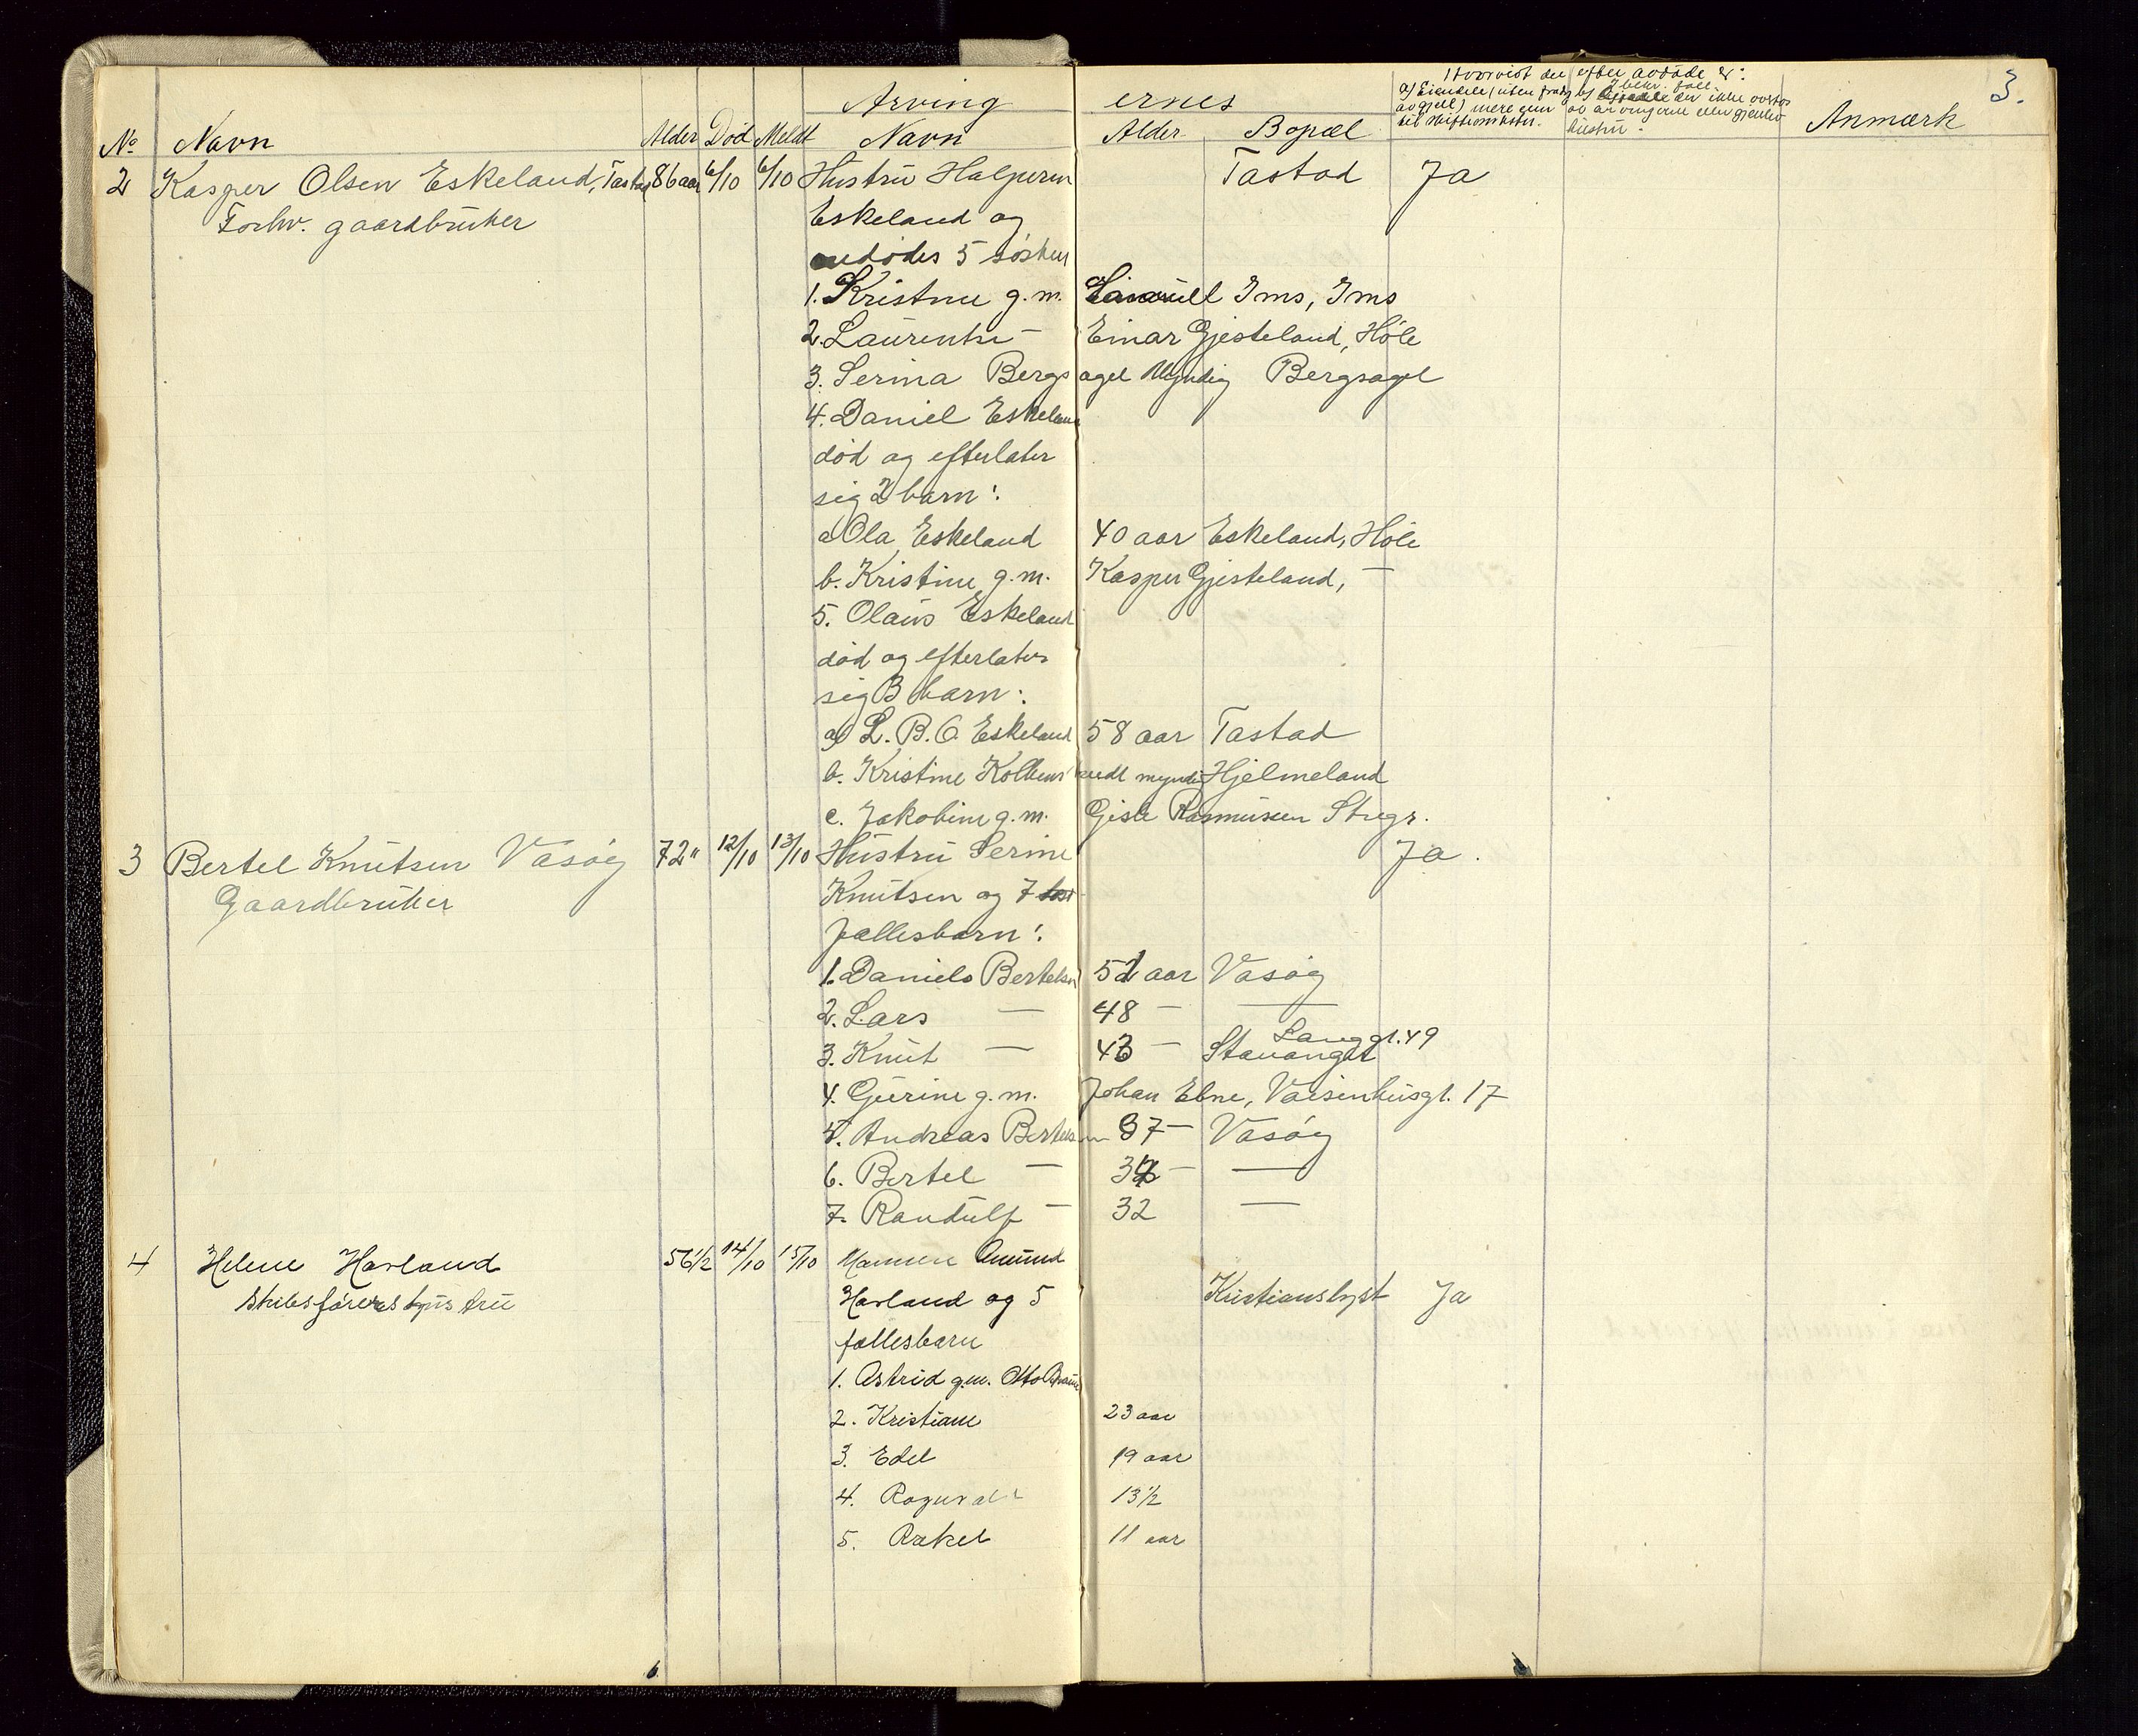 3.
Arvingernes
Hvorvidt der efter avdöde er:
a) Eiendele (uten fradrag av gjeld) mere enn til skifteomkostn.
No Navn Alder Död Meldt Navn Alder Bopæl Anmærk
2 Kasper Olsen Eskeland, Tastad 86 aar 6/10 6/10 Hustru Tastad Ja
Forhv. gaardbruker Eskeland og
avdödes 5 sösken
1. Kristine g.m. Ims, Ims
2. Laurentse — Einar Gjesteland, Höle
3. Serina Bergsagel Myndig Bergsagel
4. Daniel Eskeland
död og efterlater
sig 2 barn:
a Ola Eskeland 40 aar Eskeland, Höle
b. Kristine g.m. Kasper Gjesteland, —
5. Olaus Eskeland
död og efterlater
sig 3 barn:
a) L. B. O. Eskeland 58 aar Tastad
b. Kristine myndig Hjelmeland
c. Jakobine g.m. Gisle Rasmussen Strgr.
3 Bertel Knutsen Vasöy 72 " 12/10 13/10 Hustru Serine Ja.
Gaardbruker Knutsen og 7
fællesbarn:
1. Daniels Bertelsen 51 aar Vasöy
2. Lars — 48 — —
3. Knut — 43 — Stavanger Langgt. 49
4. Gurine g.m. Johan Ebne, Vaisenhusgt. 17
5. Andreas Bertelsen 37 — Vasöy
6. Bertel — — —
7. Randulf — 32 —
4 Helene Havland 56 1/2 14/10 15/10 Mannen Amund
Skibsförers hustru Havland og 5 Kristianslyst Ja
fællesbarn
1. Astrid g.m. Otto
2. Kristiane 23 aar
3. Edel 19 aar
4. Rognvald 13 1/2
5. Rakel 11 aar